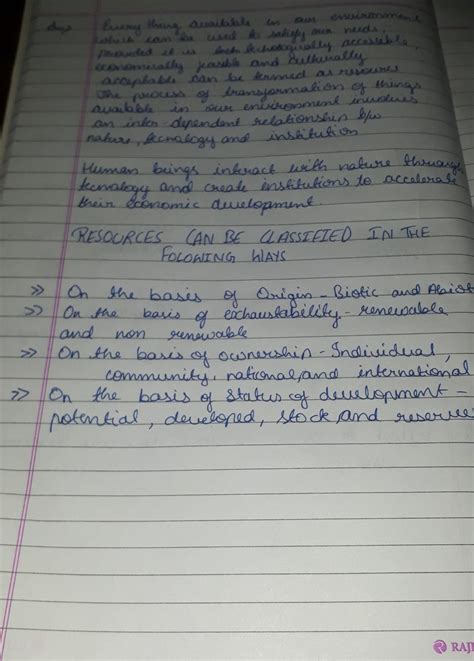 Ans) Every thing available in our environment
which can be used to satisfy our needs,
provided it is technologically accessible,
economically feasible and culturally
acceptable can be termed as resource
The process of transformation of things
available in our environment involves
an inter-dependent relationship b/w
nature, tecnology and institution
Human beings interact with nature through
tecnology and create institutions to accelerate
their economic development
RESOURCES CAN BE CLASSIFIED IN THE
FOLOWING WAYS
>> On the basis of Origin - Biotic and Abiot
>> On the basis of exhaustability - renewable
and non renewable
>> On the basis of ownership - Individual,
community, national, and international
>> On the basis of Status of development -
potential, developed, stock and reserve
RAJ